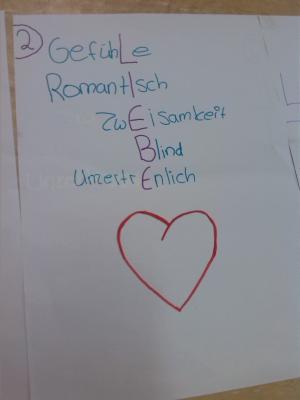 2
GefühLe
RomantIsch
ZwEisamkeit
Blind
UnzertrEnlich